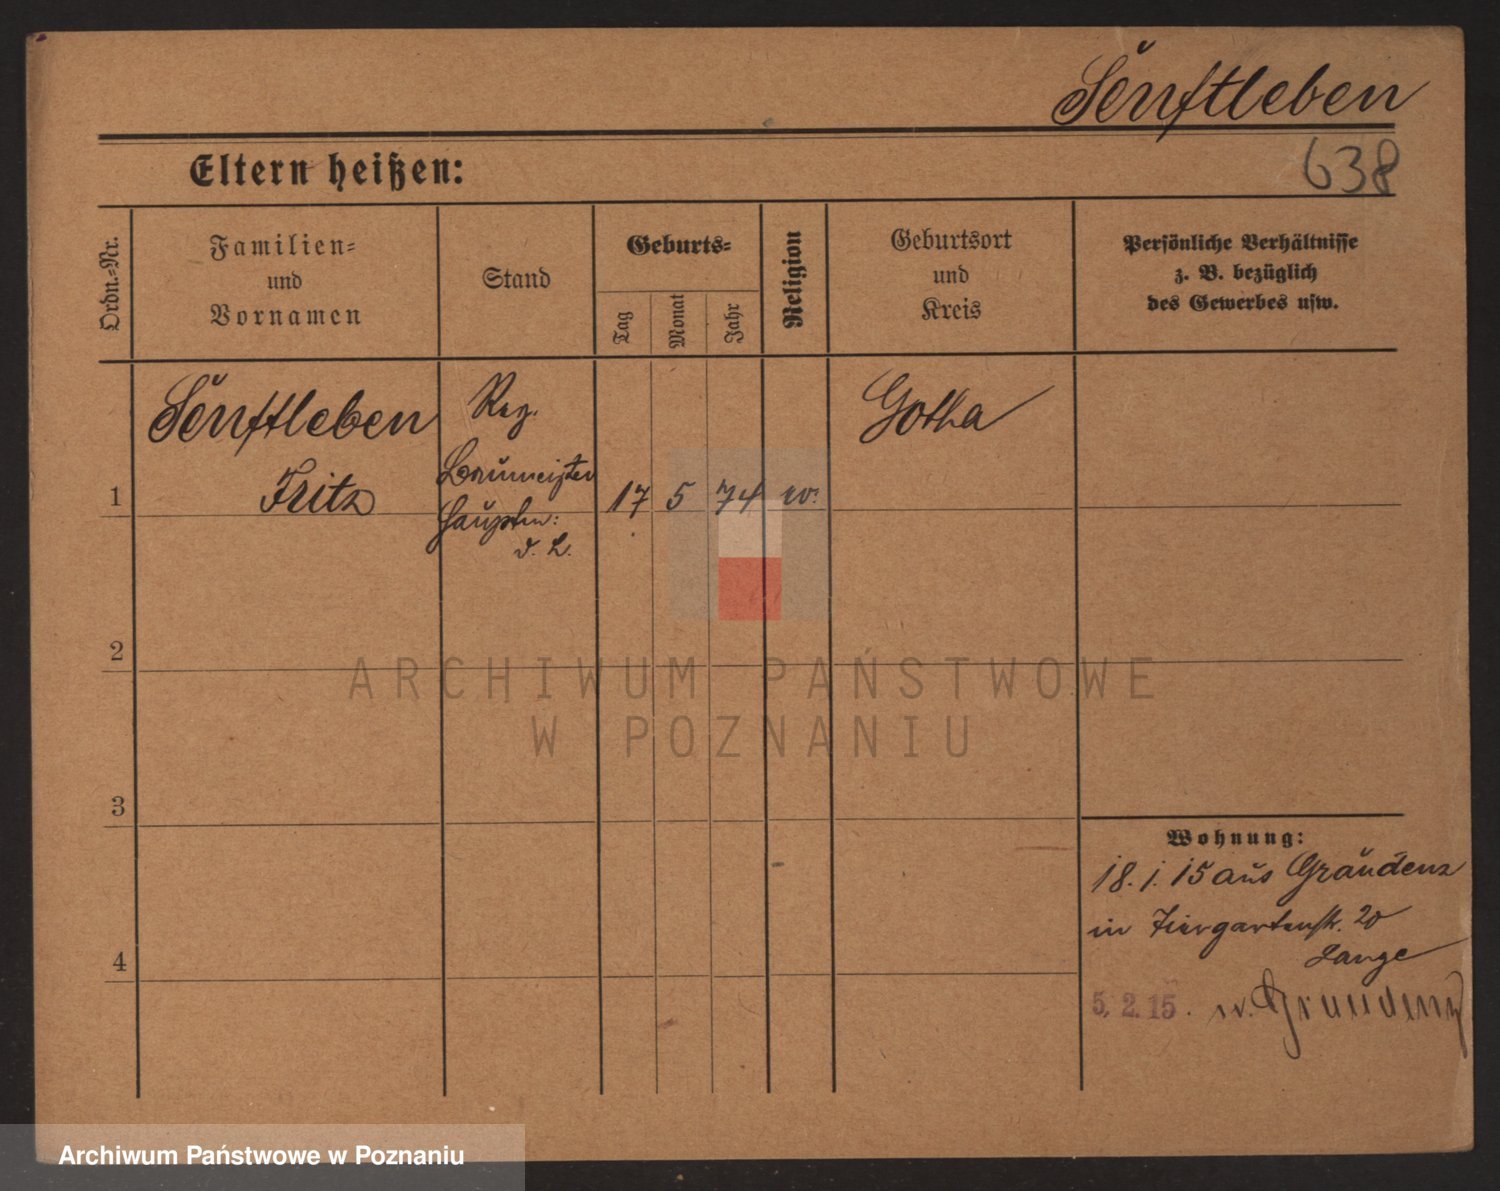 Senftleben
638
Eltern heißen:
Ordn.-Nr.
Familien-
und
Vornamen
Stand
Geburts-
Tag
Monat
Jahr
Religion
Geburtsort
und
Kreis
Persönliche Verhältnisse
z. B. bezüglich
des Gewerbes usw.
Senftleben
Fritz
Reg.
Baumeister
Hauptm:
d. L.
1
17
5
74
Gotha
2
ARCHIWUM PAŃSTWOWE
W POZNANIU
3
4
Wohnung:
18. 1. 15 aus Graudenz
in Tiergartenstr. 20
Lange
5. 2. 15. n. Graudenz
Archiwum Państwowe w Poznaniu